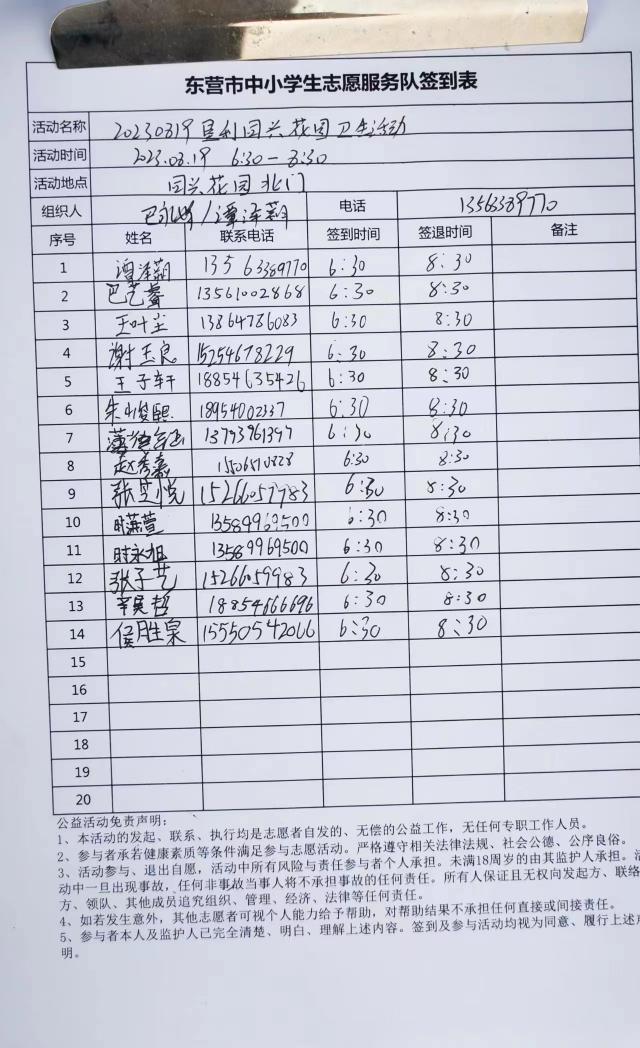 东营市中小学生志愿服务队签到表
活动名称 20230819垦利国兴花园卫生活动
活动时间 2023.08.19 6:30-8:30
活动地点 国兴花园北门
组织人 /谭泽菊 电话 13563389770
序号 姓名 联系电话 签到时间 签退时间 备注
1 13563389770 6:30 8:30
2 巴艺蓉 13561002868 6:30 8:30
3 王叶尘 13864786083 6:30 8:30
4 谢玉良 15254678229 6:30 8:30
5 王子轩 18854635426 6:30 8:30
6 朱峻熙 18954002337 6:30 8:30
7 13793961397 6:30 8:30
8 赵彦嘉 6:30 8:30
9 张芝悦 15266059983 6:30 8:30
10 13589969500 6:30 8:30
11 时永旭 13589969500 6:30 8:30
12 张子艺 15266059983 6:30 8:30
13 辛昊哲 18854666696 6:30 8:30
14 侯胜泉 15550542066 6:30 8:30
15
16
17
18
19
20
公益活动免责声明：
1、本活动的发起、联系、执行均是志愿者自发的、无偿的公益工作，无任何专职工作人员。
2、参与者承若健康素质等条件满足参与志愿活动。严格遵守相关法律法规、社会公德、公序良俗。
3、活动参与、退出自愿，活动中所有风险与责任参与者个人承担。未满18周岁的由其监护人承担。活
动中一旦出现事故，任何非事故当事人将不承担事故的任何责任。所有人保证且无权向发起方、联络
方、领队、其他成员追究组织、管理、经济、法律等任何责任。
4、如若发生意外，其他志愿者可视个人能力给予帮助，对帮助结果不承担任何直接或间接责任。
5、参与者本人及监护人已完全清楚、明白、理解上述内容。签到及参与活动均视为同意、履行上述声
明。